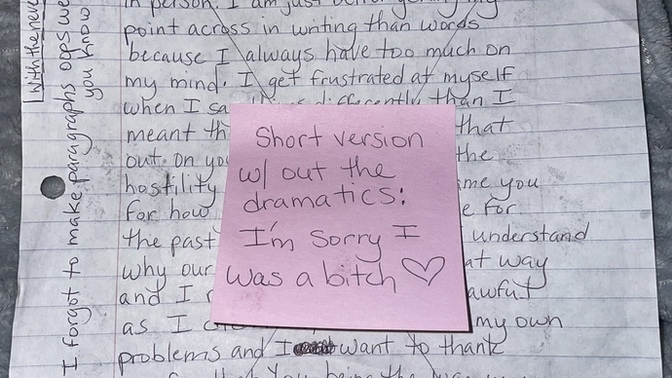 in person. I am just better getting my
point across in writing than words
because I always have too much on
my mind. I get frustrated at myself
when I sa differently than I
meant th that
out on you the
hostility me you
for how e for
the past understand
why our at way
and I awful
as I my own
problems and I want to thank
Short version
w/ out the
dramatics:
I'm sorry I
was a bitch ♡
I forgot to make paragraphs oops we
you know